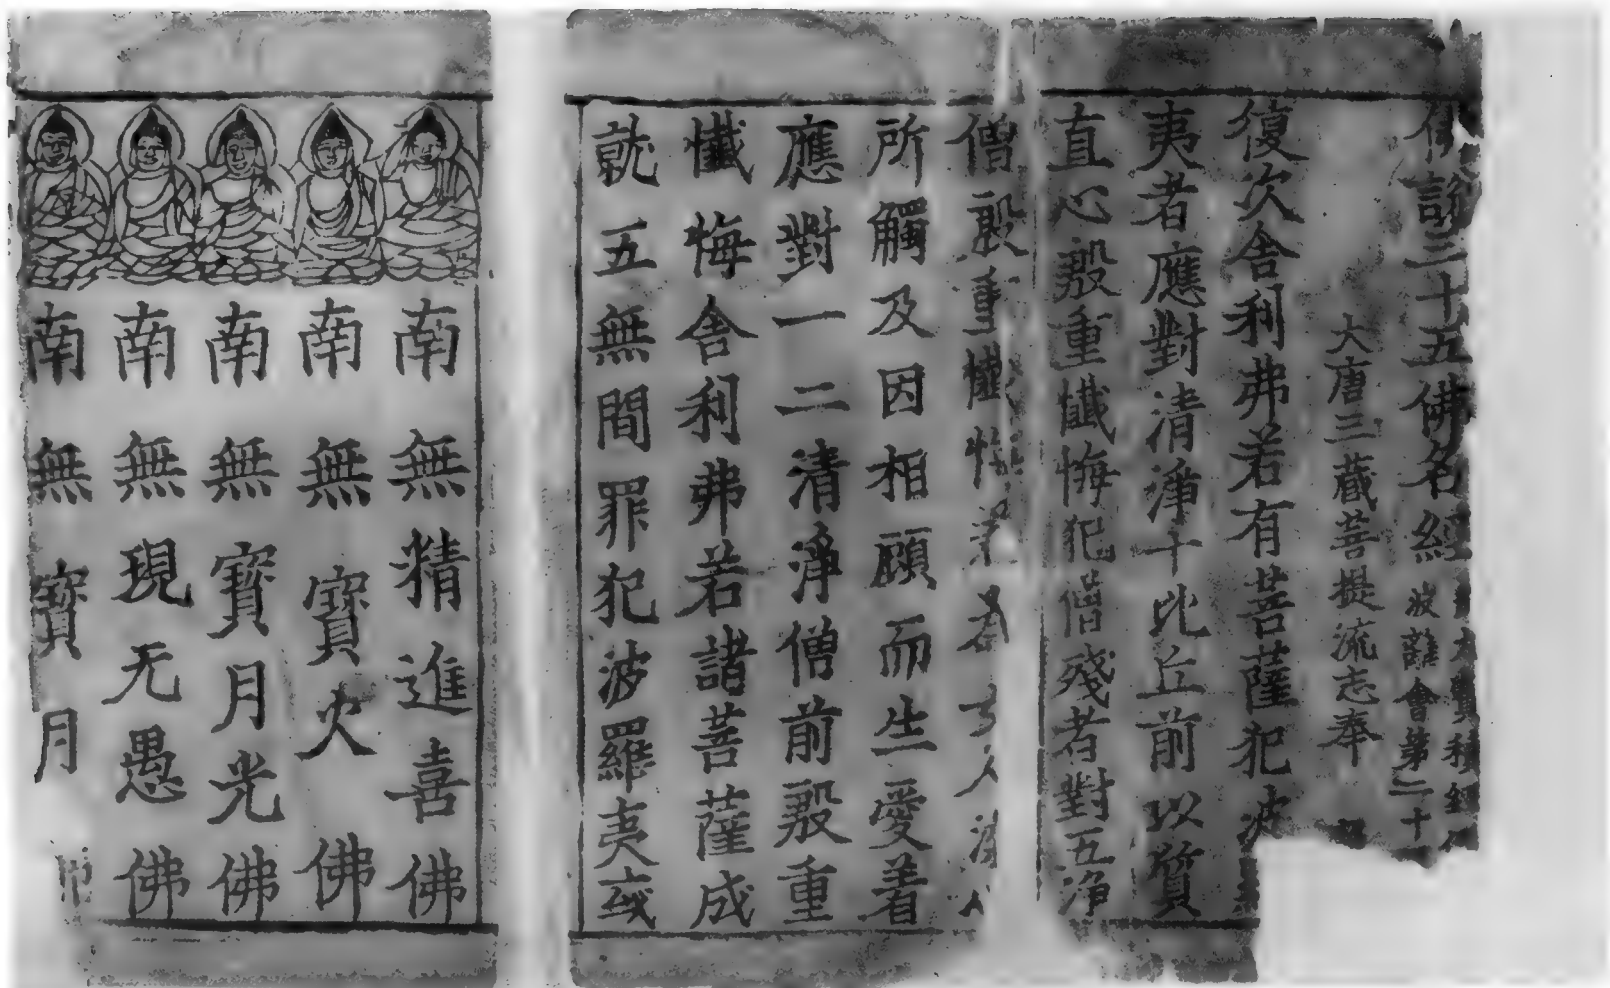 佛說三十五佛名經
大寶積經
波離會第二十
大唐三藏菩提流志奉
復次舍利弗若有菩薩犯波
夷者應對清淨十比丘前以質
直心殷重懺悔犯僧殘者對五淨
僧殷重懺悔若為女人染心
所觸及因相顧而生愛着
應對一二清淨僧前殷重
懺悔舍利弗若諸菩薩成
就五無間罪犯波羅夷或
南無精進喜佛
南無寶火佛
南無寶月光佛
南無現无愚佛
南無寶月佛